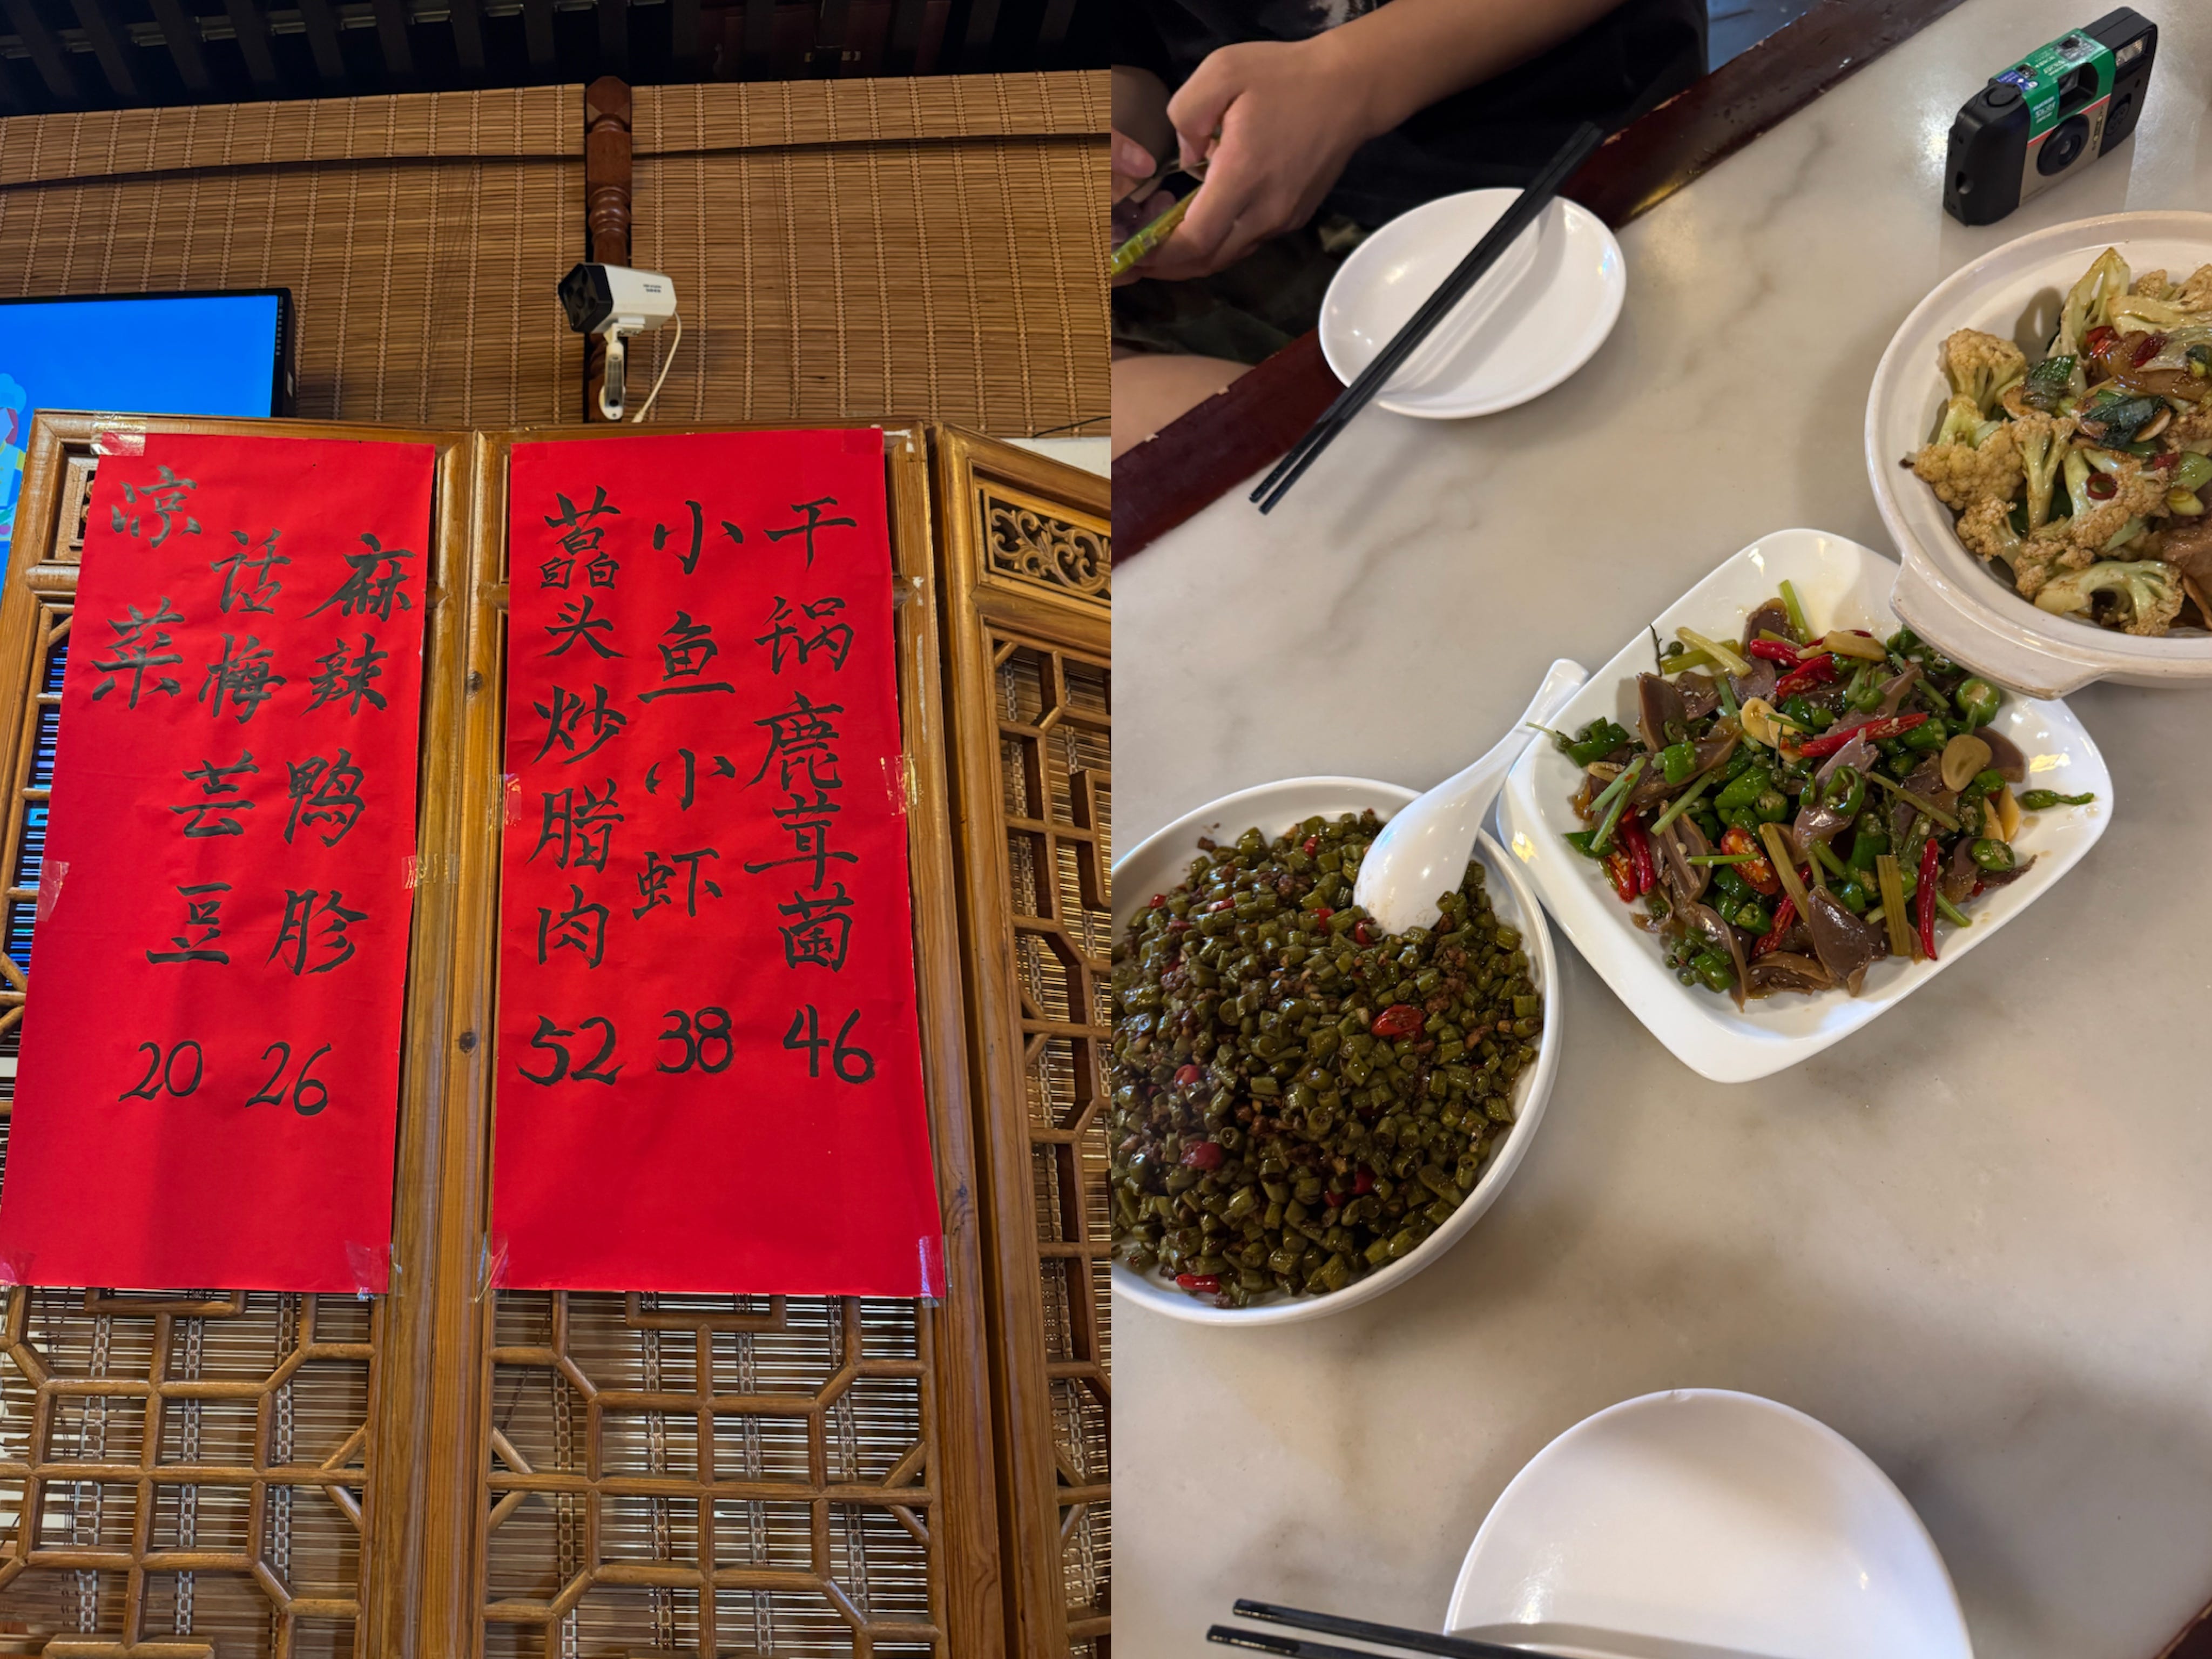 凉菜
麻辣鸭胗 26
话梅芸豆 20
干锅鹿茸菌 46
小鱼小虾 38
藠头炒腊肉 52